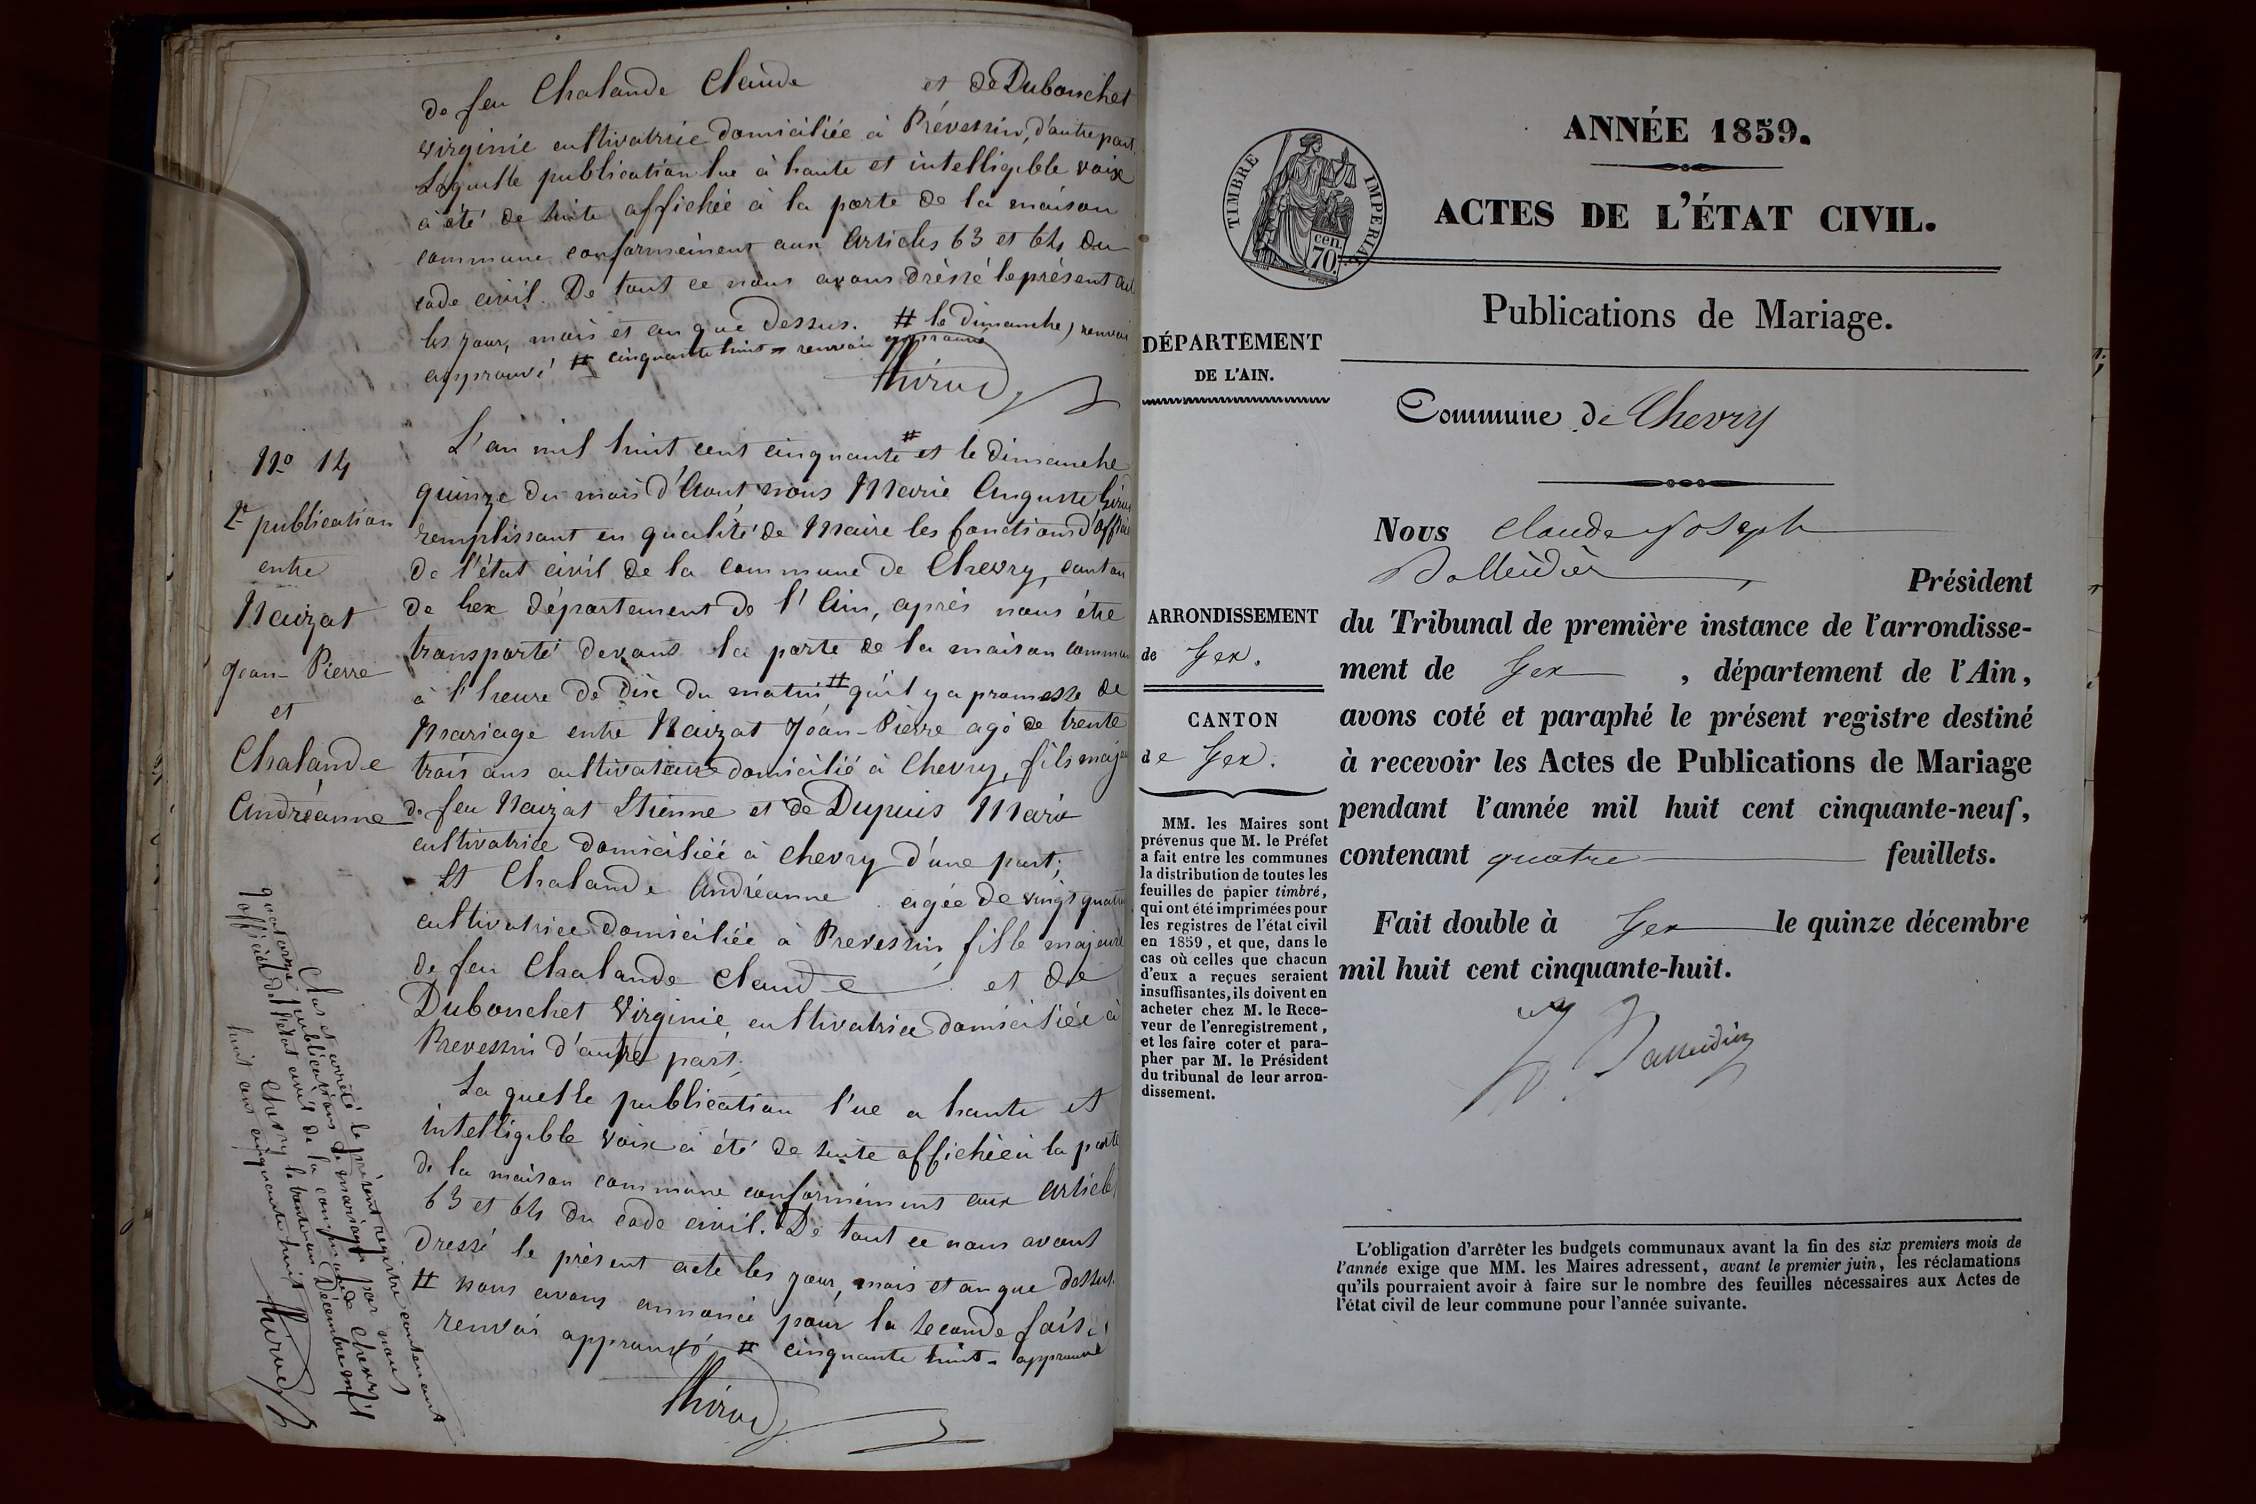 de feu Chalande Claude et de Dubouchet
virginie cultivatrice domiciliée à Prévessin, d'autre part.
Laquelle publication lue à haute et intelligible voix
à été de suite affichée à la porte de la maison
commune conformément aux Articles 63 et 64 du
code civil. De tout ce nous avons dressé le présent acte
les jour, mois et an que dessus. # le dimanche, renvoi
approuvé # cinquante huit = renvoi approuvé
Girod
No 14
2e publication
entre
Naizat
Jean-Pierre
et
Chalande
Andréanne
L'an mil huit cent cinquante # et le dimanche
quinze du mois d'Aout nous Marie Auguste Girod
remplissant en qualité de Maire les fonctions d'officier
de l'état civil de la commune de Chevry, canton
de Gex département de l'Ain, après nous être
transporté devant la porte de la maison commune
à l'heure de dix du matin # qu'il y a promesse de
Mariage entre Naizat Jean-Pierre agé de trente
trois ans cultivateur domicilié à Chevry, fils majeur
de feu Naizat Etienne et de Dupuis Marie
cultivatrice domiciliée à Chevry d'une part;
Et Chalande Andréanne agée de vingt quatre
cultivatrice domiciliée à Prevessin, fille majeure
de feu Chalande Claude et de
Dubouchet Virginie, cultivatrice domiciliée à
Prevessin d'autre part;
La quelle publication l'ue a haute et
intelligible voix à été de suite affichée à la porte
de la maison commune conformément aux Articles
63 et 64 du code civil. De tout ce nous avons
dressé le présent acte les jour, mois et an que dessus.
# nous avons annoncé pour la seconde fois
renvoi approuvé # cinquante huit = approuvé
Girod
Clos et arrêté le présent registre contenant
quatorze publications de mariages par nous
officier de l'état civil de la commune de Chevry
Chevry le trente un Décembre mil
huit cent cinquante huit
Girod
ANNÉE 1859.
ACTES DE L'ÉTAT CIVIL.
TIMBRE IMPERIAL
cen.
70.
Publications de Mariage.
DÉPARTEMENT
DE L'AIN.
Commune de Chevry
Nous Claude Joseph
Président
du Tribunal de première instance de l'arrondisse-
ment de Gex, département de l'Ain,
avons coté et paraphé le présent registre destiné
à recevoir les Actes de Publications de Mariage
pendant l'année mil huit cent cinquante-neuf,
contenant quatre feuillets.
Fait double à Gex le quinze décembre
mil huit cent cinquante-huit.
ARRONDISSEMENT
de Gex.
CANTON
de Gex.
MM. les Maires sont
prévenus que M. le Préfet
a fait entre les communes
la distribution de toutes les
feuilles de papier timbré,
qui ont été imprimées pour
les registres de l'état civil
en 1859, et que, dans le
cas où celles que chacun
d'eux a reçues seraient
insuffisantes, ils doivent en
acheter chez M. le Rece-
veur de l'enregistrement,
et les faire coter et para-
pher par M. le Président
du tribunal de leur arron-
dissement.
L'obligation d'arrêter les budgets communaux avant la fin des six premiers mois de
l'année exige que MM. les Maires adressent, avant le premier juin, les réclamations
qu'ils pourraient avoir à faire sur le nombre des feuilles nécessaires aux Actes de
l'état civil de leur commune pour l'année suivante.